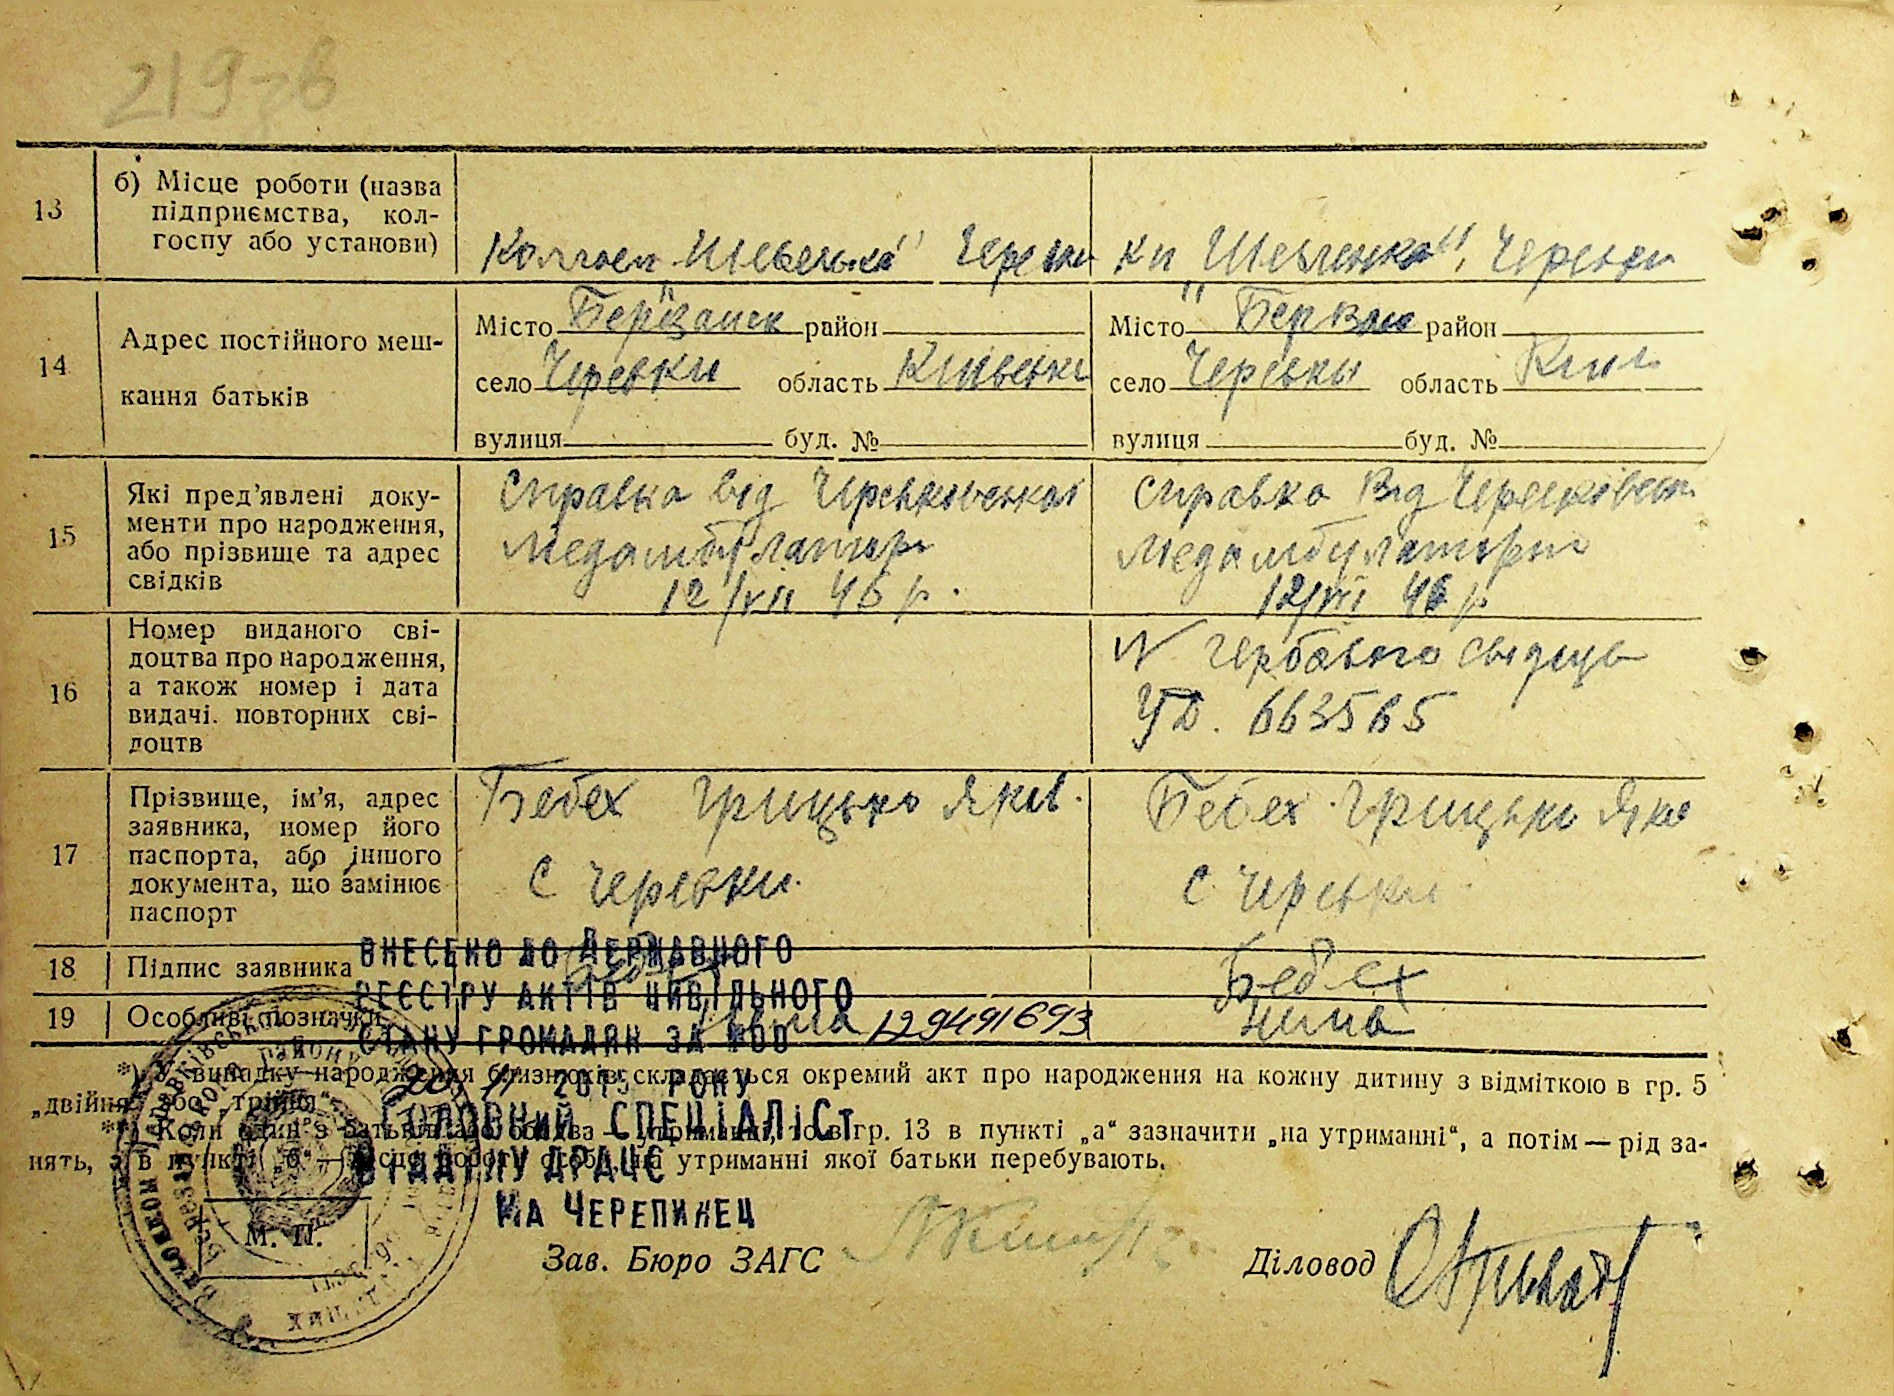 219зв
13
б) Місце роботи (назва
підприємства, кол-
госпу або установи)
Шевченка" Черевки
кп "Шевченка", Черевки
14
Адрес постійного меш-
кання батьків
Місто район
село Черевки область Київськ
вулиця буд. №
Місто район
село Черевки область Київ
вулиця буд. №
15
Які пред'явлені доку-
менти про народження,
або прізвище та адрес
свідків
Справка від
Медамбулатор
12/VII 46 р.
Справка Від
Медамбулаторії
12/VII 46 р
16
Номер виданого сві-
доцтва про народження,
а також номер і дата
видачі. повторних сві-
доцтв
N гербового
663565
17
Прізвище, ім'я, адрес
заявника, номер його
паспорта, або іншого
документа, що замінює
паспорт
Бебех Грицько Яків.
С Черевки.
Бебех Грицько Яков
С Черевки
18
Підпис заявника
Бебех
19
Особливі позначки
нима
ВНЕСЕНО ДО ДЕРЖАВНОГО
РЕЄСТРУ АКТІВ ЦИВІЛЬНОГО
СТАНУ ГРОМАДЯН ЗА №00 129491693
РОКУ
ГОЛОВНИЙ СПЕЦІАЛІСТ
ВІДДІЛУ ДРАЦС
ЧЕРЕПИНЕЦ
*) У випадку народження близнюків складається окремий акт про народження на кожну дитину з відміткою в гр. 5
„двійня" або „трійня".
**) Коли один з батьків або обидва — утриманці, то в гр. 13 в пункті „а" зазначити „на утриманні", а потім — рід за-
нять, а в пункті „б" — місце роботи особи, на утриманні якої батьки перебувають.
М. П.
Зав. Бюро ЗАГС
Діловод